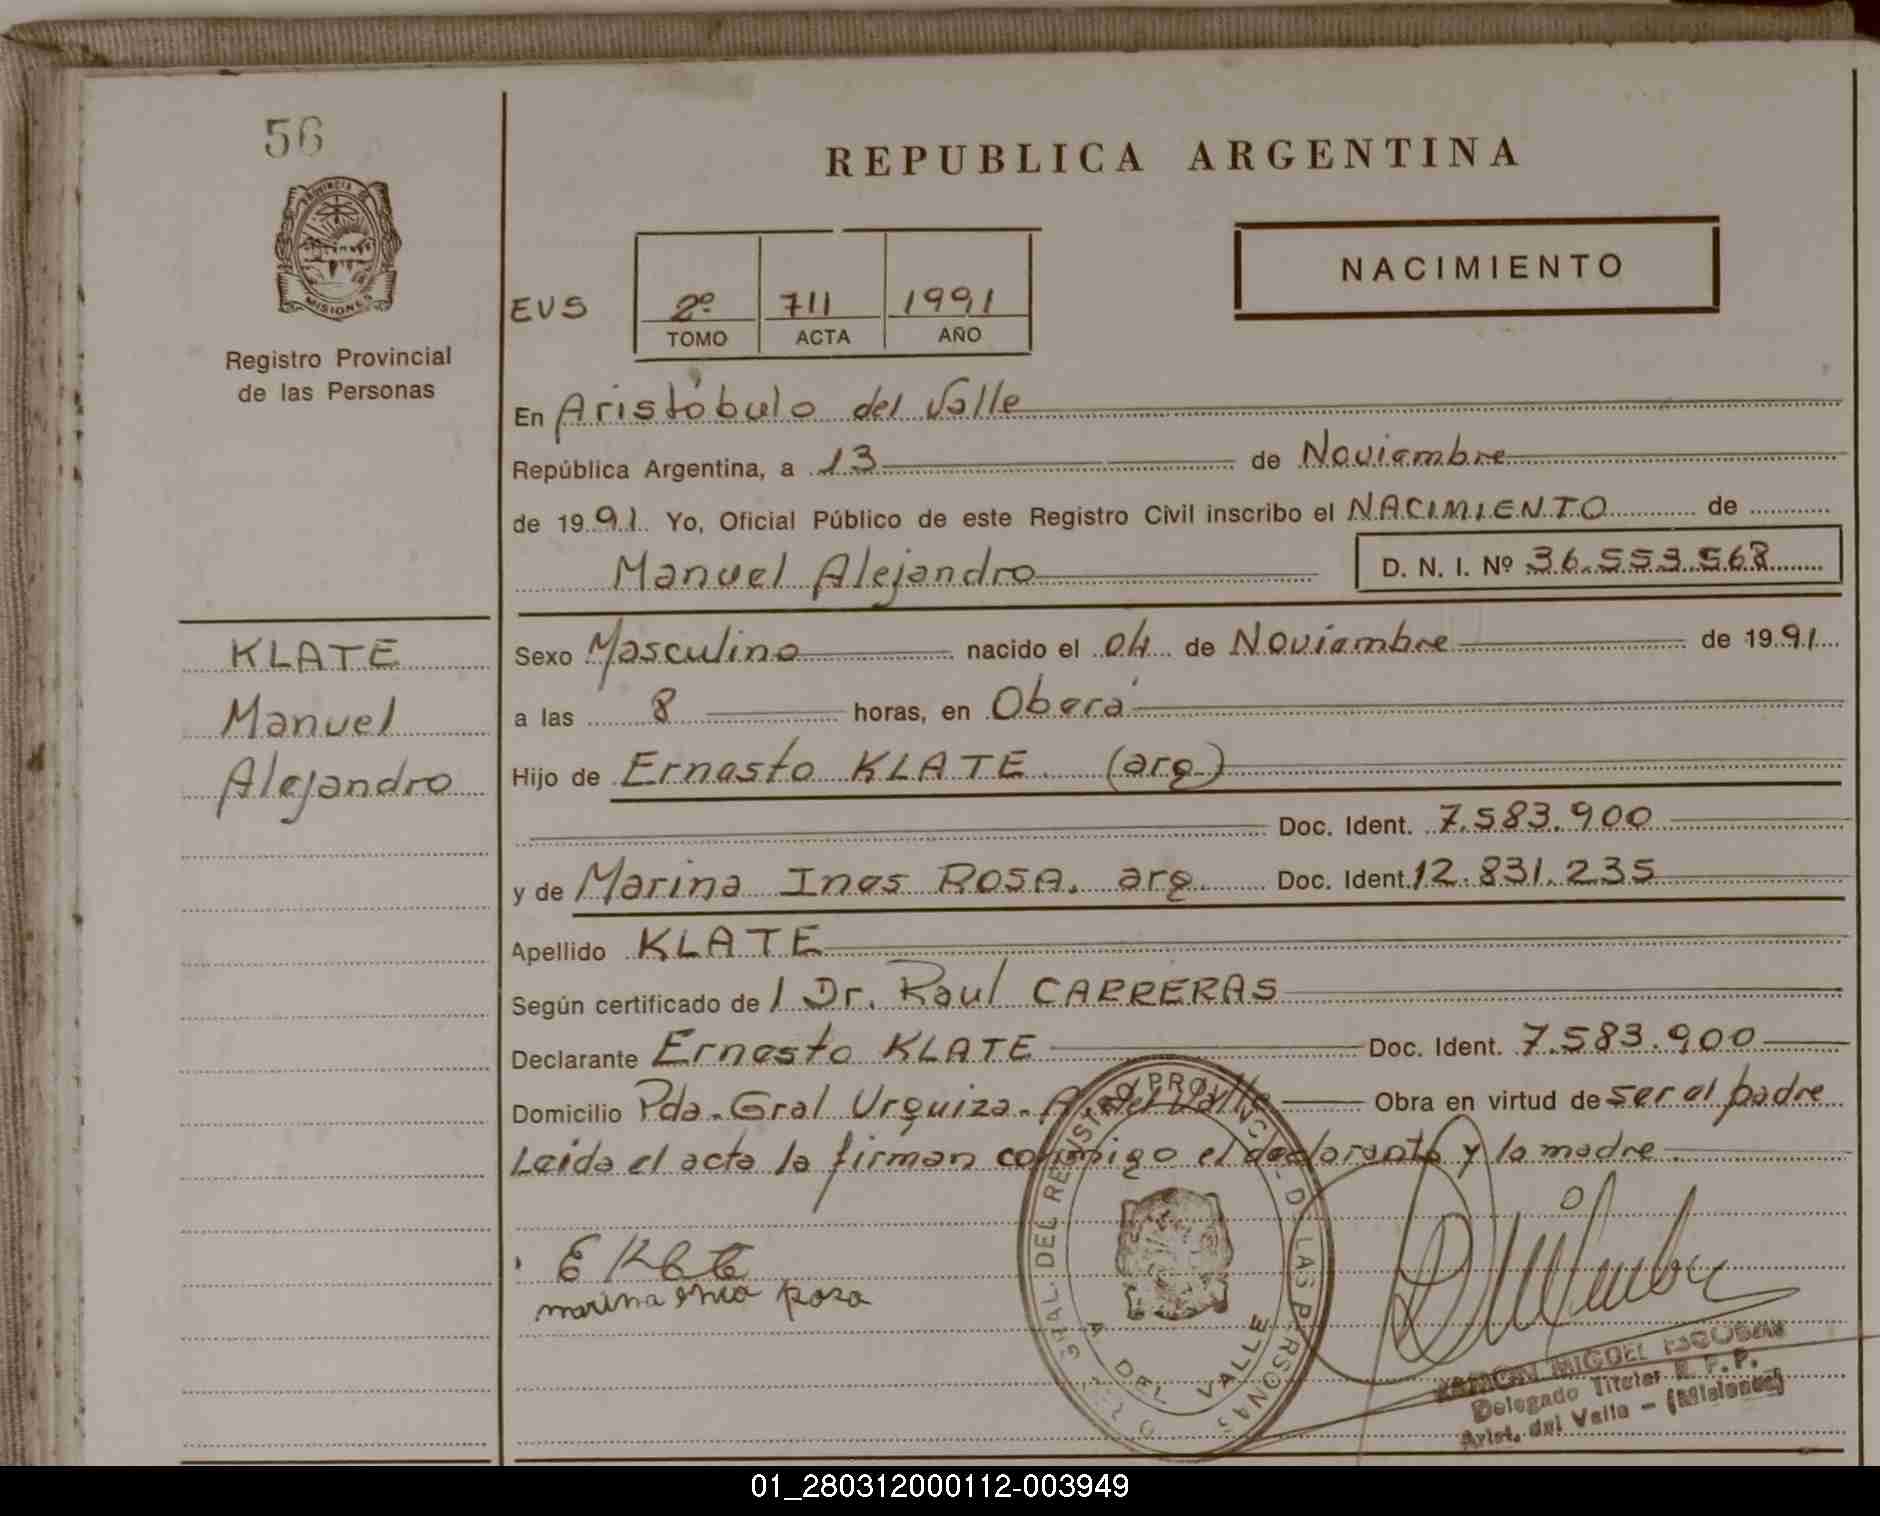 56
PROVINCIA DE
MISIONES
Registro Provincial
de las Personas
REPUBLICA ARGENTINA
NACIMIENTO
EVS
2º 711 1991
TOMO ACTA AÑO
En Aristóbulo del Valle
República Argentina, a 13 de Noviembre
de 1991. Yo, Oficial Público de este Registro Civil inscribo el NACIMIENTO de
Manuel Alejandro D. N. I. Nº 36.553.568
KLATE
Manuel
Alejandro
Sexo Masculino nacido el 04 de Noviembre de 1991
a las 8 horas, en Oberá
Hijo de Ernesto KLATE (arg.)
Doc. Ident. 7.583.900
y de Marina Ines ROSA. arg. Doc. Ident. 12.831.235
Apellido KLATE
Según certificado de l Dr. Raul CARRERAS
Declarante Ernesto KLATE Doc. Ident. 7.583.900
Domicilio Pda. Gral Urquiza. A. del Valle Obra en virtud de ser el padre
Leida el acta la firman conmigo el declarante y la madre
E Klate
marina rosa
GRAL. DEL REGISTRO PROVINCIAL DE LAS PERSONAS
A. DEL VALLE
RAMON MIGUEL ESCOBAR
Delegado Titular R. P. P.
Arist. del Valle - (Misiones)
01_280312000112-003949